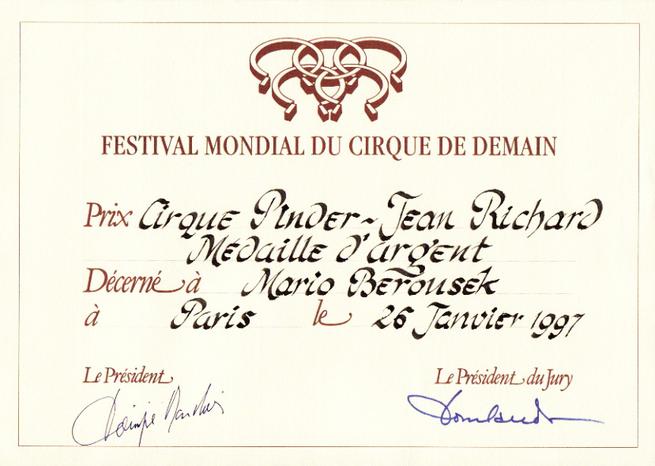 FESTIVAL MONDIAL DU CIRQUE DE DEMAIN
Prix Cirque Pinder - Jean Richard
Médaille d'argent
Décerné à Mario Berousek
à Paris le 26 Janvier 1997
Le Président Le Président du Jury